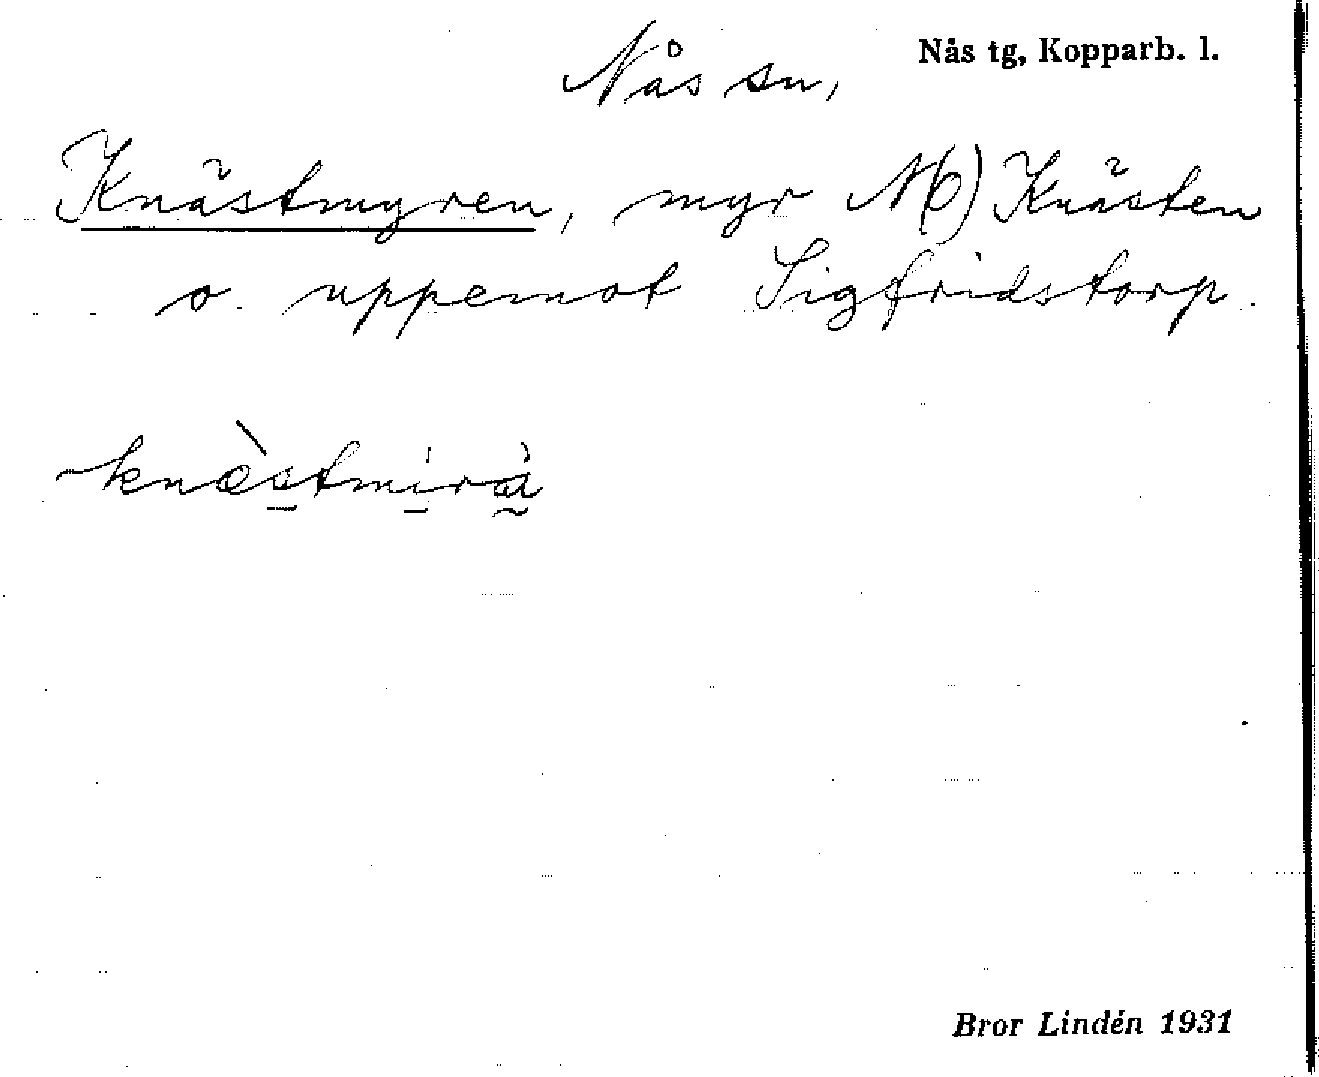 Nås sn,
Nås tg, Kopparb. l.
Knästmyren, myr N(o) Knästen
o. uppemot Sigfridstorp.
knæ̀stmirà
Bror Lindén 1931